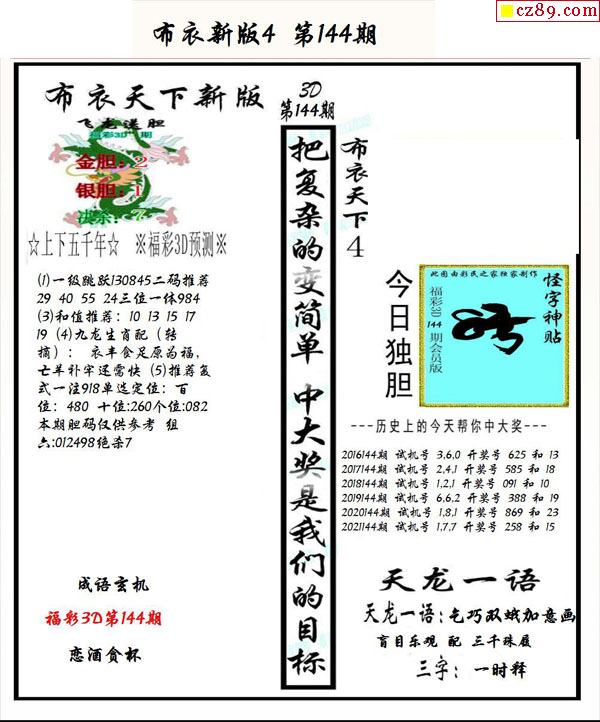 cz89.com
布衣新版4 第144期
布衣天下新版
飞龙送胆
福彩3D 期
金胆：2
银胆：1
决杀：7
☆上下五千年☆ ※福彩3D预测※
(1)一级跳跃130845二码推荐
29 40 55 24三位一体984
(3)和值推荐：10 13 15 17
19 (4)九龙生肖配（转
摘）： 衣丰食足原为福，
亡羊补牢还需快 (5)推荐复
式一注918单选定位：百
位：480 十位:260个位:082
本期胆码仅供参考 组
六:012498绝杀7
成语玄机
福彩3D第144期
恋酒贪杯
3D
第144期
把复杂的变简单 中大奖是我们的目标
布衣天下4
今日独胆
此图由彩民之家独家制作
福彩3D 144 期会员版
怪字神贴
---历史上的今天帮你中大奖---
2016144期 试机号 3,6,0 开奖号 625 和 13
2017144期 试机号 2,4,1 开奖号 585 和 18
2018144期 试机号 1,2,1 开奖号 091 和 10
2019144期 试机号 6,6,2 开奖号 388 和 19
2020144期 试机号 1,8,1 开奖号 869 和 23
2021144期 试机号 1,7,7 开奖号 258 和 15
天龙一语
天龙一语:乞巧双蛾加意画
盲目乐观 配 三千珠履
三字: 一时释